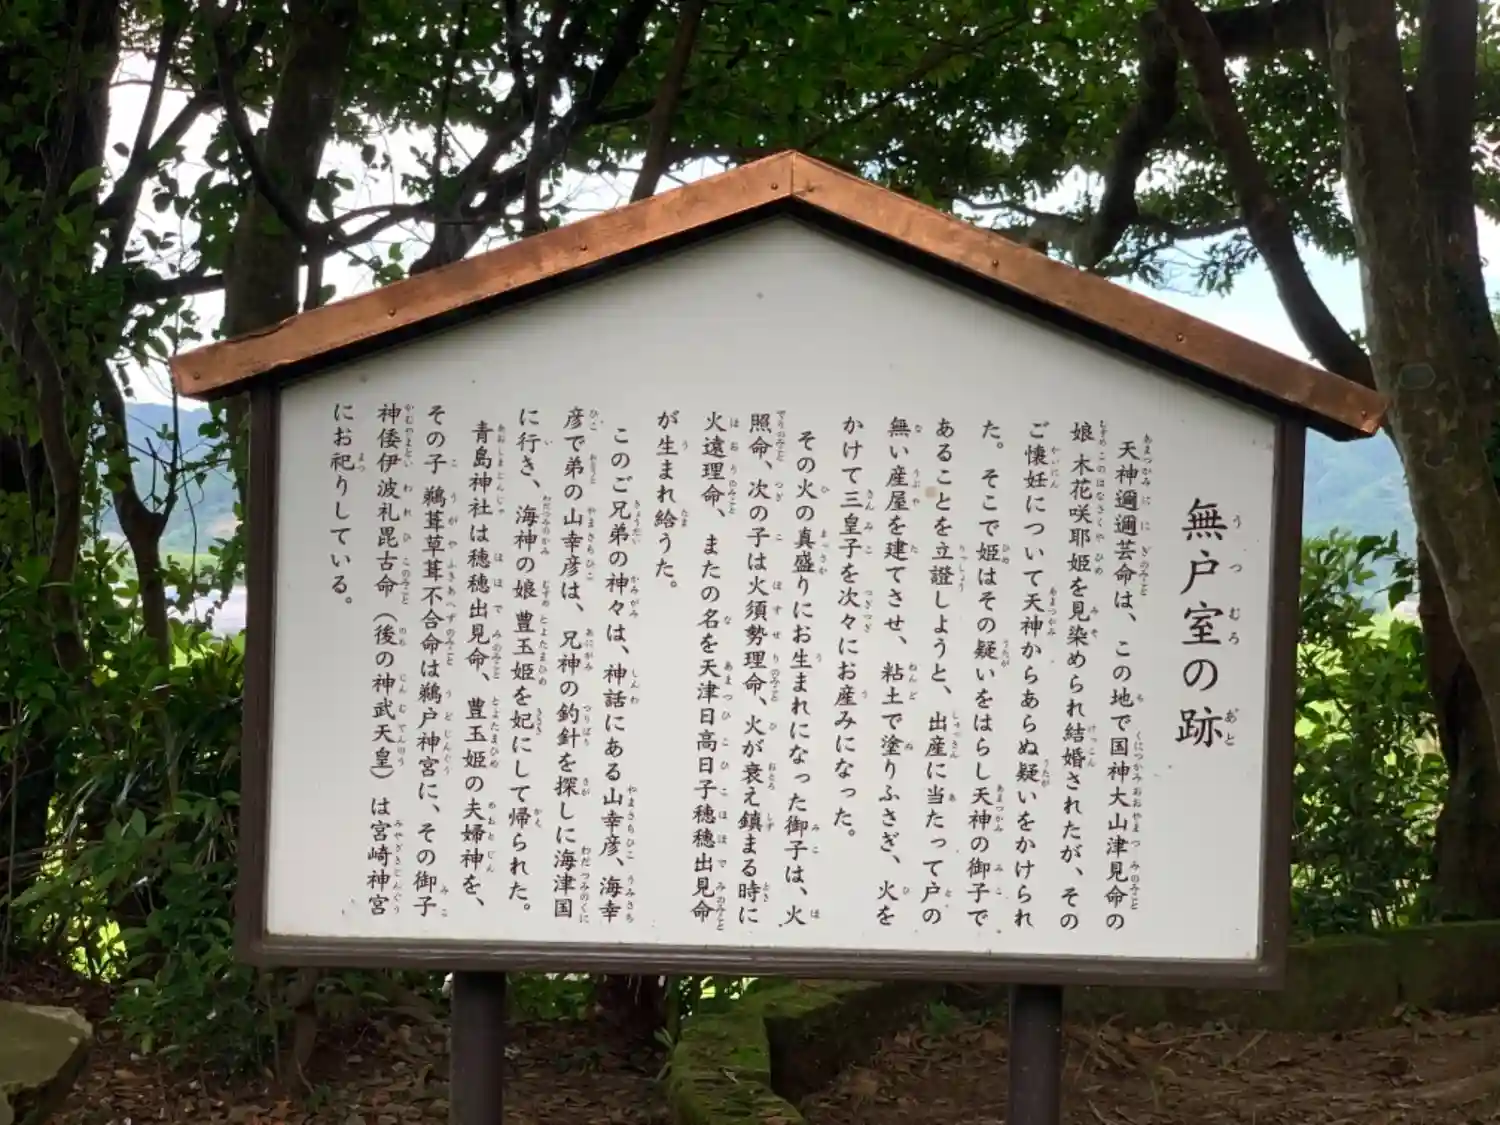 無戸室の跡
天神邇邇芸命は、この地で国神大山津見命の
娘 木花咲耶姫を見染められ結婚されたが、その
ご懐妊について天神からあらぬ疑いをかけられ
た。そこで姫はその疑いをはらし天神の御子で
あることを立證しようと、出産に当たって戸の
無い産屋を建てさせ、粘土で塗りふさぎ、火を
かけて三皇子を次々にお産みになった。
その火の真盛りにお生まれになった御子は、火
照命、次の子は火須勢理命、火が衰え鎮まる時に
火遠理命、またの名を天津日高日子穂穂出見命
が生まれ給うた。
このご兄弟の神々は、神話にある山幸彦、海幸
彦で弟の山幸彦は、兄神の釣針を探しに海津国
に行き、海神の娘 豊玉姫を妃にして帰られた。
青島神社は穂穂出見命、豊玉姫の夫婦神を、
その子 鵜葺草葺不合命は鵜戸神宮に、その御子
神倭伊波礼毘古命（後の神武天皇）は宮崎神宮
にお祀りしている。